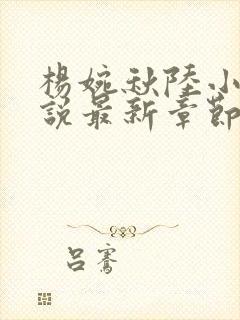 楊婉秋陸小
說最新章節
呂騫